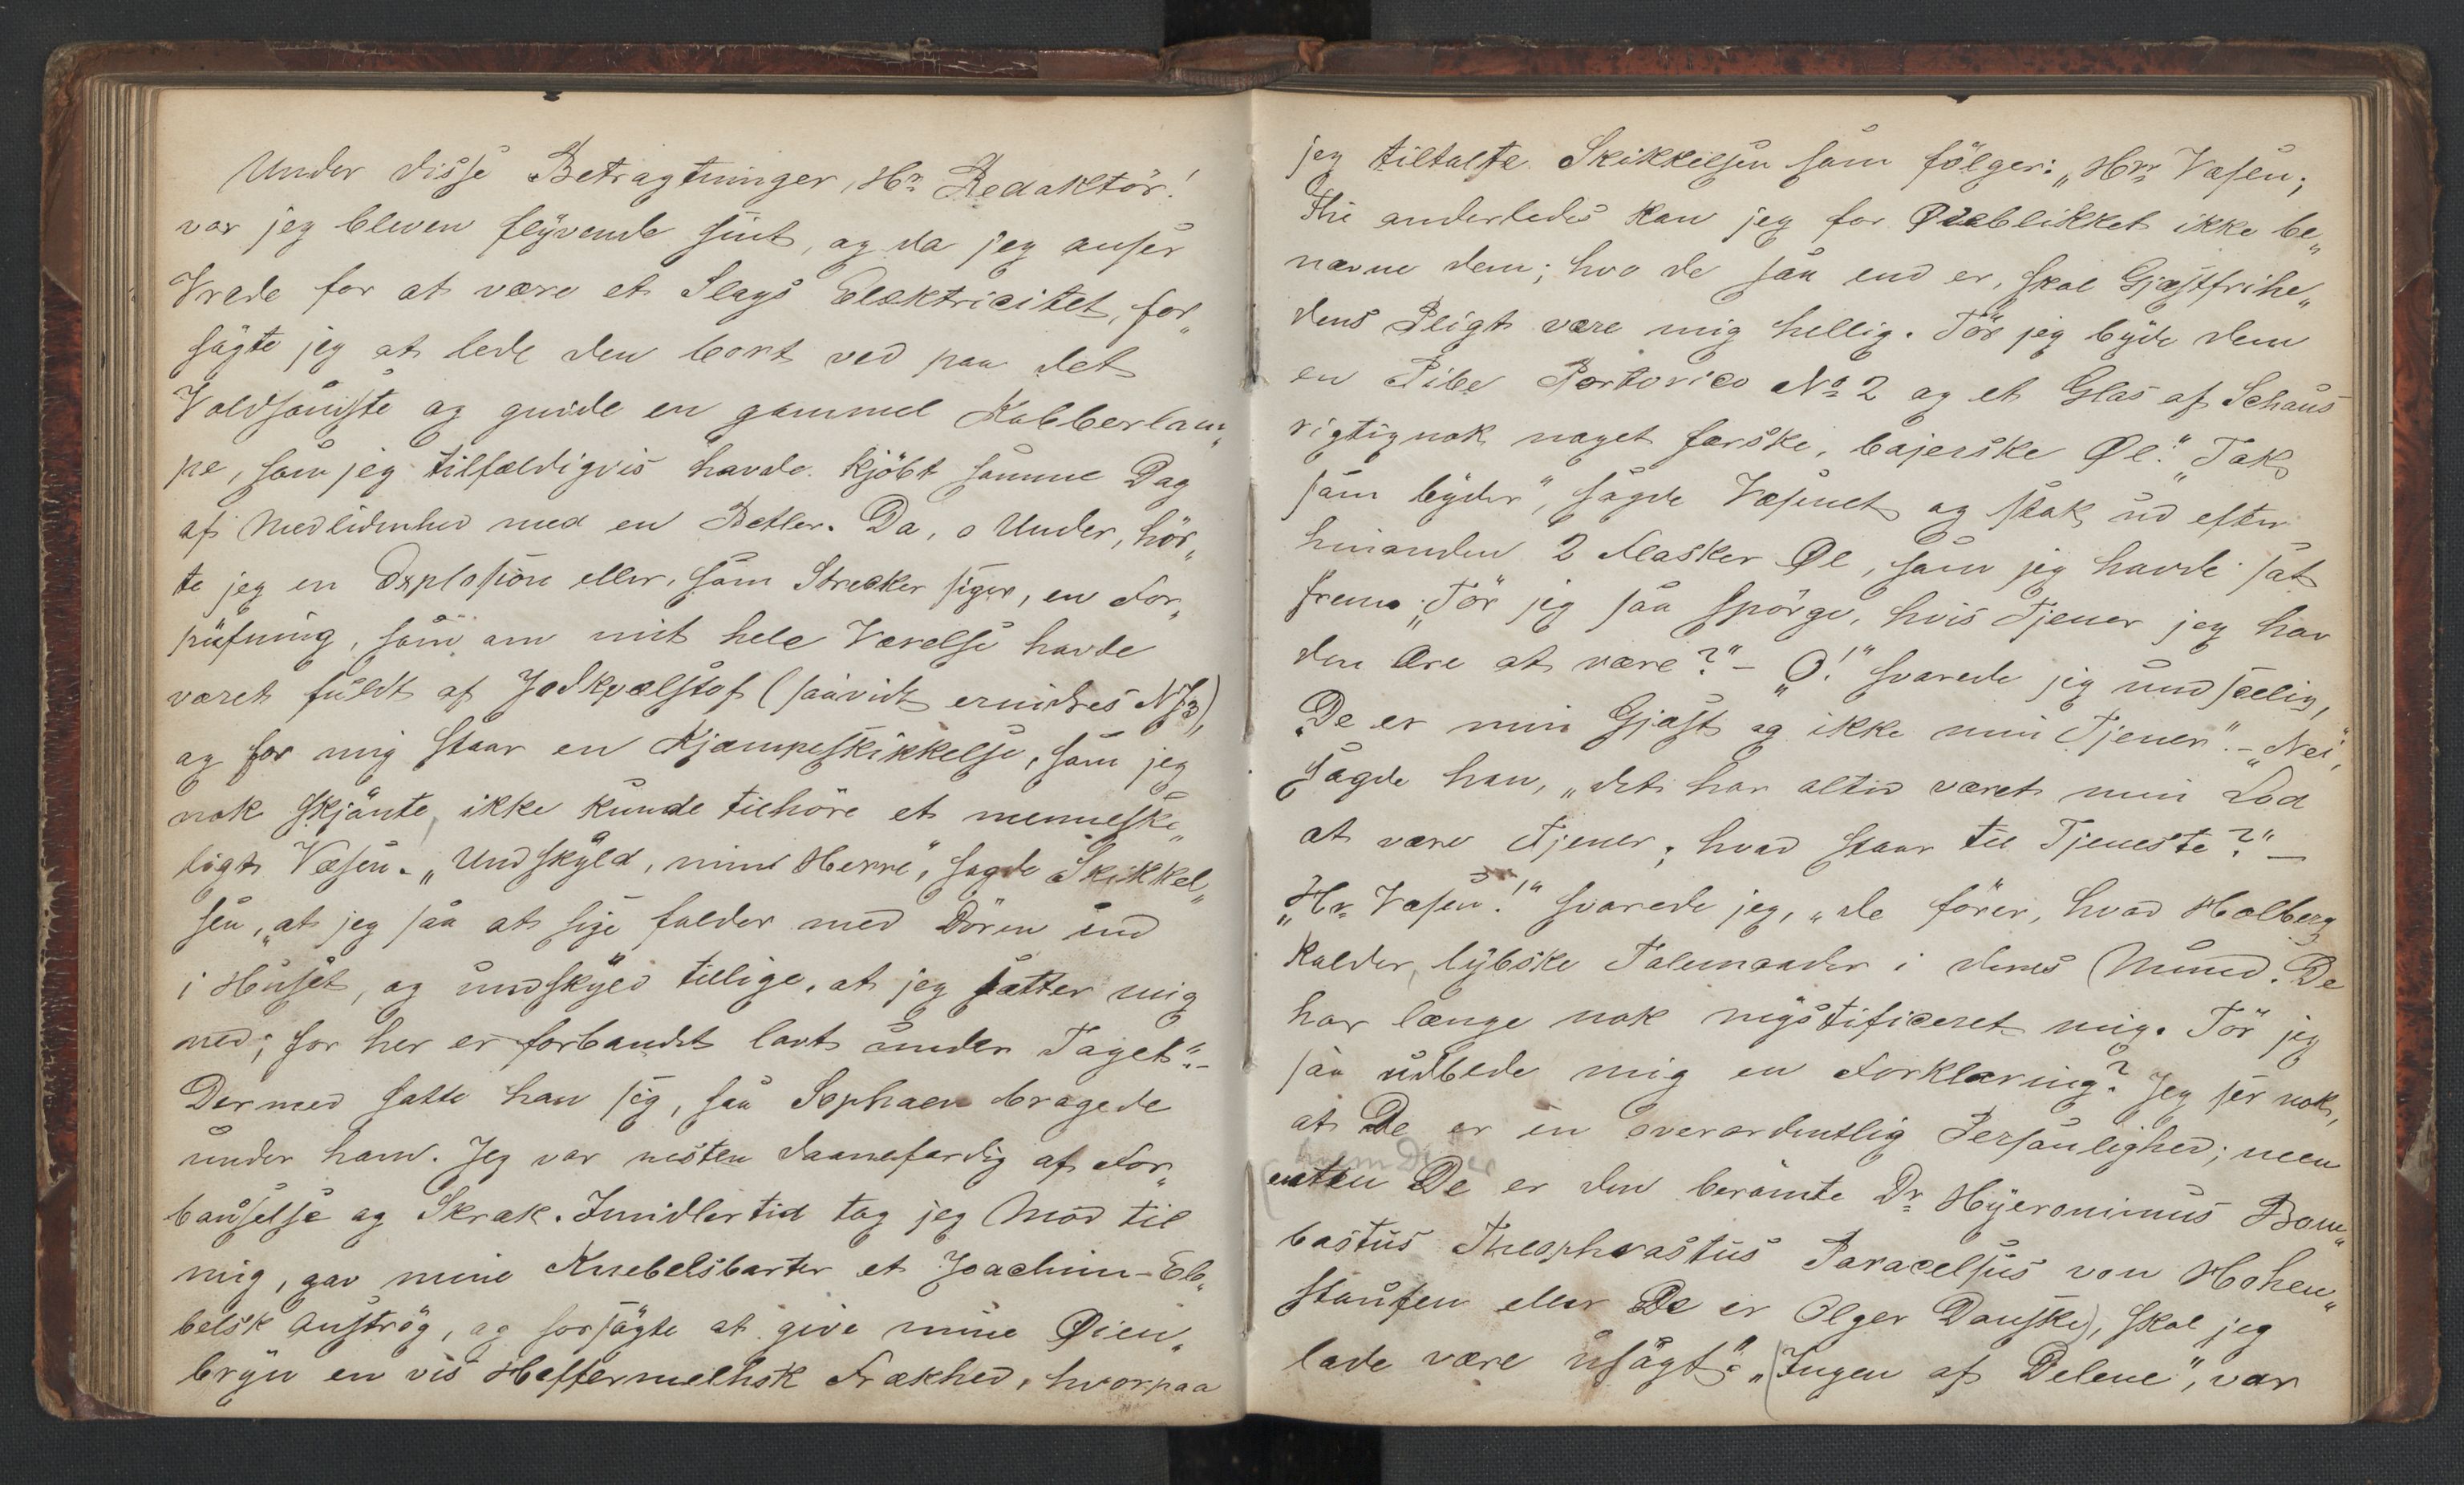 Under disse Betragtninger, Hr. Redaktör!
var jeg bleven flyvende sint, og da jeg anser
Vrede for at være et Slags Elektricitet, for„
søgte jeg at lede den bort ved paa det
Voldsomste og gnide en gammel Kobberlam„
pe, som jeg tilfældigvis havde kjöbt samme Dag
af Medlidenhed med en Betler. Da, o Under, hör„
te jeg en Explosion eller, som Strecker siger, en For„
pufning, som om mit hele Værelse havde
været fuldt af Jodkvælstof (saavidt erindres NJ3),
og for mig staar en Kjæmpeskikkelse, som jeg
nok skjönte, ikke kunde tilhöre et menneske„
ligt Væsen. „Undskyld, min Herre“, sagde Skikkel„
sen, „at jeg saa at sige falder med Dören ind
i Huset, og undskyld tillige, at jeg sætter mig
ned; for her er forbandet lavt under Taget“. –
Dermed satte han sig, saa Sophaen bragede
under ham. Jeg var næsten daanefærdig af For„
bauselse og Skræk. Imidlertid tog jeg Mod til
mig, gav mine Knebelsbarter et Joachim-Eb„
belsk Anströg, og forsögte at give mine Øien„
bryn en vis Heffermehlsk Frækhed, hvorpaa
jeg tiltalte Skikkelsen som fölger: „Hrr Væsen;
thi anderledes kan jeg for Øieblikket ikke be„
nævne dem; hvo de saa end er, skal Gjæstfrihe„
dens Pligt være mig hellig. Tör jeg byde dem
en Pibe Portorico No 2 og et Glas af Schous
rigtignok noget færske, bajerske Øl“. „Tak
som byder“, sagde Væsenet og stak ud efter
hinanden 2 Flasker Øl, som jeg havde sat
frem. „Tör jeg saa spörge, hvis Tjener jeg har
den Ære at være?“ – „O!“ svarede jeg undseelig,
„De er min Gjæst og ikke min Tjener“. – „Nei“,
sagde han, „det har altid været min Lod
at være Tjener; hvad staar til Tjeneste?“ –
„Hr. Væsen!“ svarede jeg, „de förer, hvad Holberg
kalder, lybske Talemaader i deres Mund. De
har længe nok mystificeret mig. Tör jeg
saa udbede mig en Forklaring? Jeg ser nok,
at De er en overordentlig Personlighed; men
hvem De er
(enten De er den berömte Dr. Hyeronimus Bom„
bastus Theophrastus Paracelsus von Hohen„
staufen eller De er Olger Danske), skal jeg
lade være usagt“. „(Ingen af Delene“, var